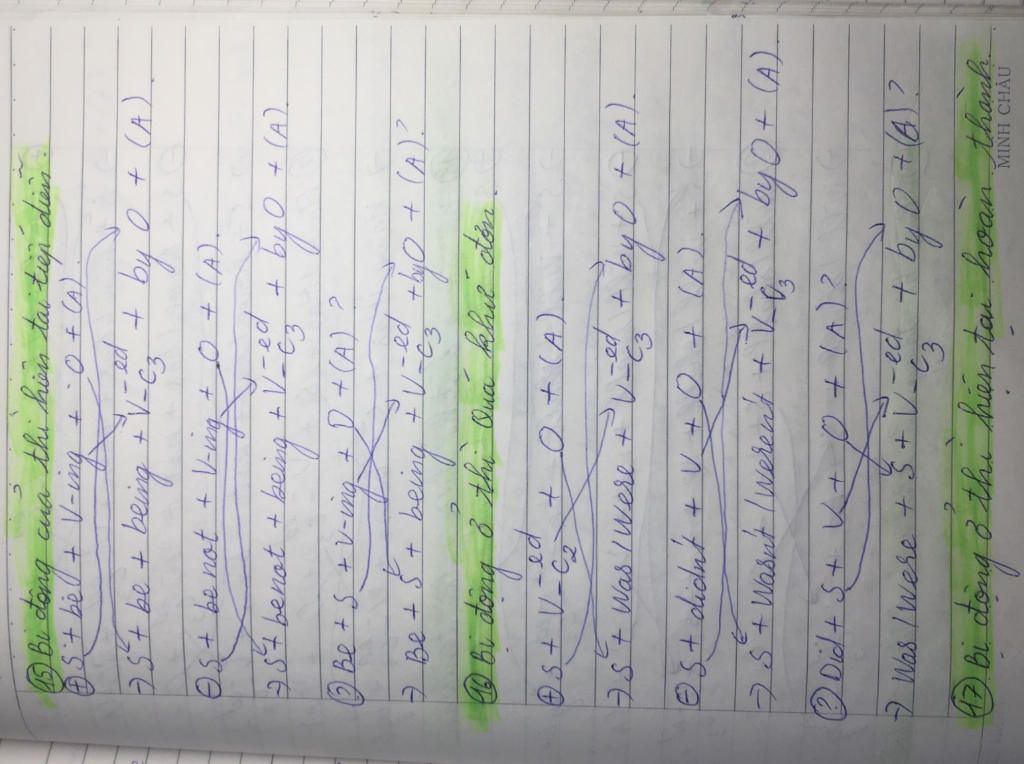 (15) Bị động của thì hiện tại tiếp diễn.
(+) S + be + V-ing + O + (A)
→ S + be + being + V-ed/C3 + by O + (A)
(-) S + be not + V-ing + O + (A)
→ S + be not + being + V-ed/C3 + by O + (A).
(?) Be + S + V-ing + O + (A)?
→ Be + S + being + V-ed/C3 + by O + (A)?
(16) Bị động ở thì Quá khứ đơn
(+) S + V-ed/C2 + O + (A)
→ S + Was / Were + V-ed/C3 + by O + (A).
(-) S + didn't + V + O + (A)
→ S + Wasn't / Weren't + V-ed/C3 + by O + (A).
(?) Did + S + V + O + (A)?
→ Was / Were + S + V-ed/C3 + by O + (A)?
(17) Bị động ở thì hiện tại hoàn thành.
MINH CHÂU